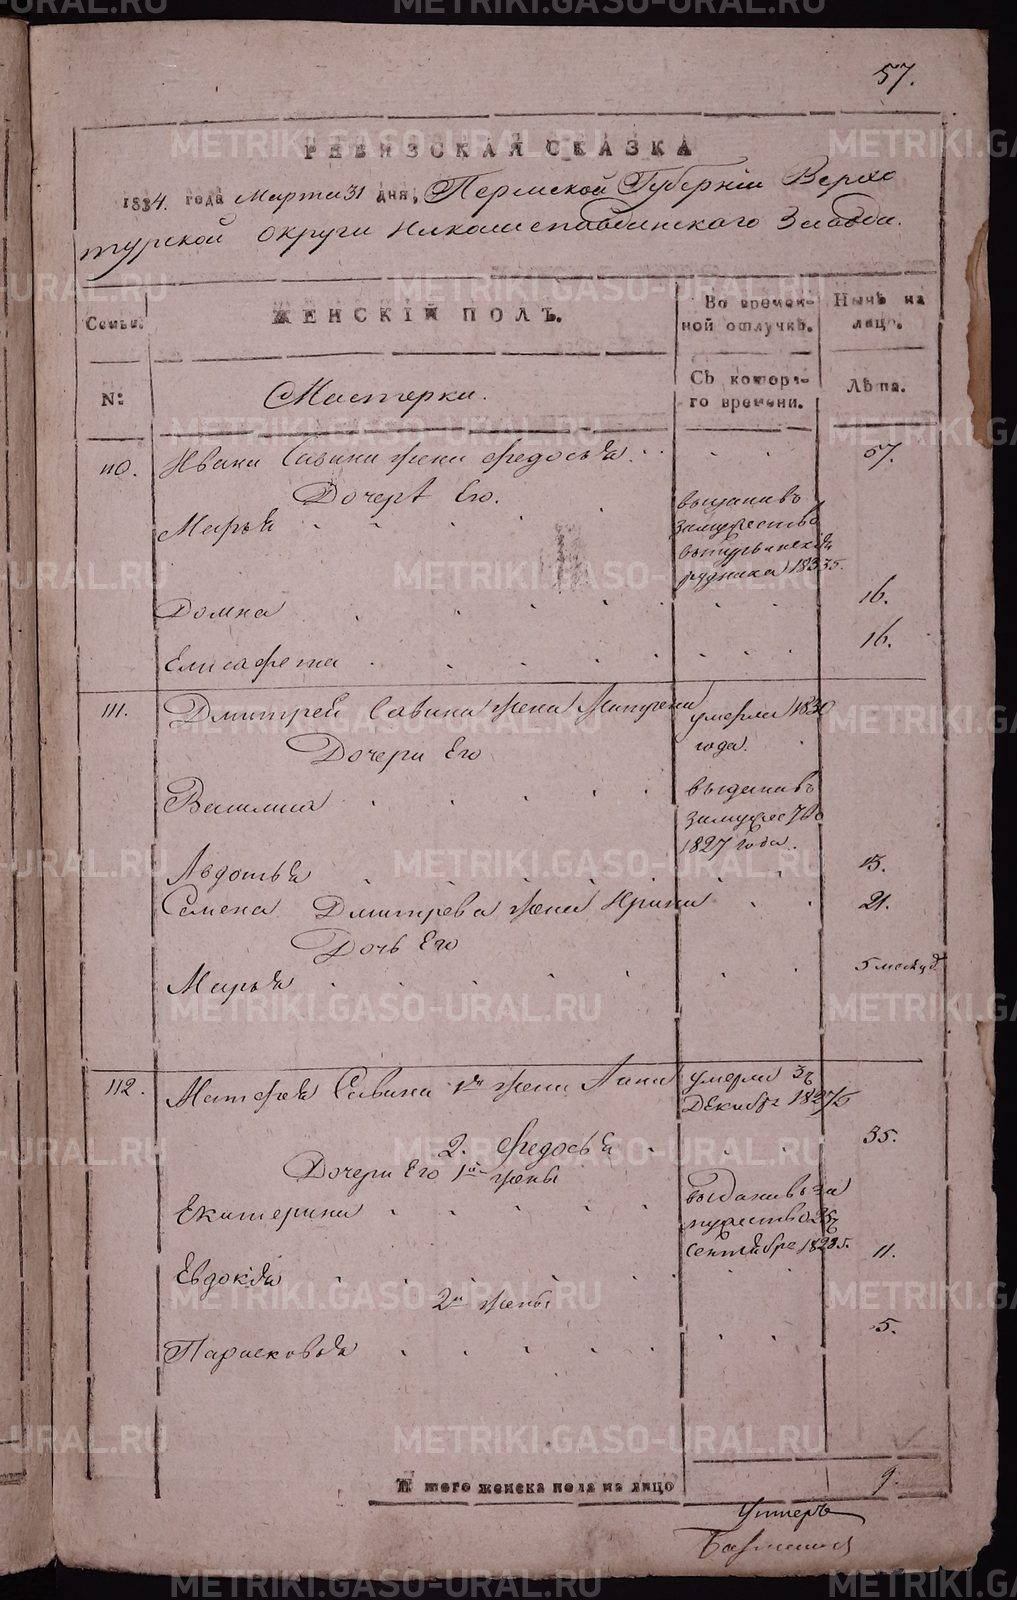 57.
РЕВИЗСКАЯ СКАЗКА
1834. года Марта 31 дня, Пермской Губернiи Верхо
турской округи Николаепавдинского Завода.
Семьи. ЖЕНСКIЙ ПОЛЪ. Во времен-ной отлучкѣ. Нынѣ на лицо.
N: Мастерки. Съ котора-го времени. Лѣта.
110. Ивана Савина жена Федосья . . . . 57.
Дочери Его.
Марья . . . . . выдана въ
замужество
рудника 1833
Домна . . . . . . . 16.
Елисафета . . . . . . . 16.
111. Дмитрей Савина жена умерла 1830
года.
Дочери Его
Василиса . . . . . выдана въ
замужество
1827 года.
Авдотья . . . . . . . 15.
Семена Дмитрева жена Ирина . . 21.
Дочь Его
Марья . . . . . . . 5 месяцов
112. Матфея Савина 1я жена Анна умерла
Декабря
2. Федосья . . 35.
Дочери Его 1й жены
Екатерина . . . . . выдана въ за
мужество
Сентября
Евдокiя . . . . . . . 11.
2й жены
Парасковья . . . . . . . 5.
Итого женска пола на лицо 9.
METRIKI.GASO-URAL.RU